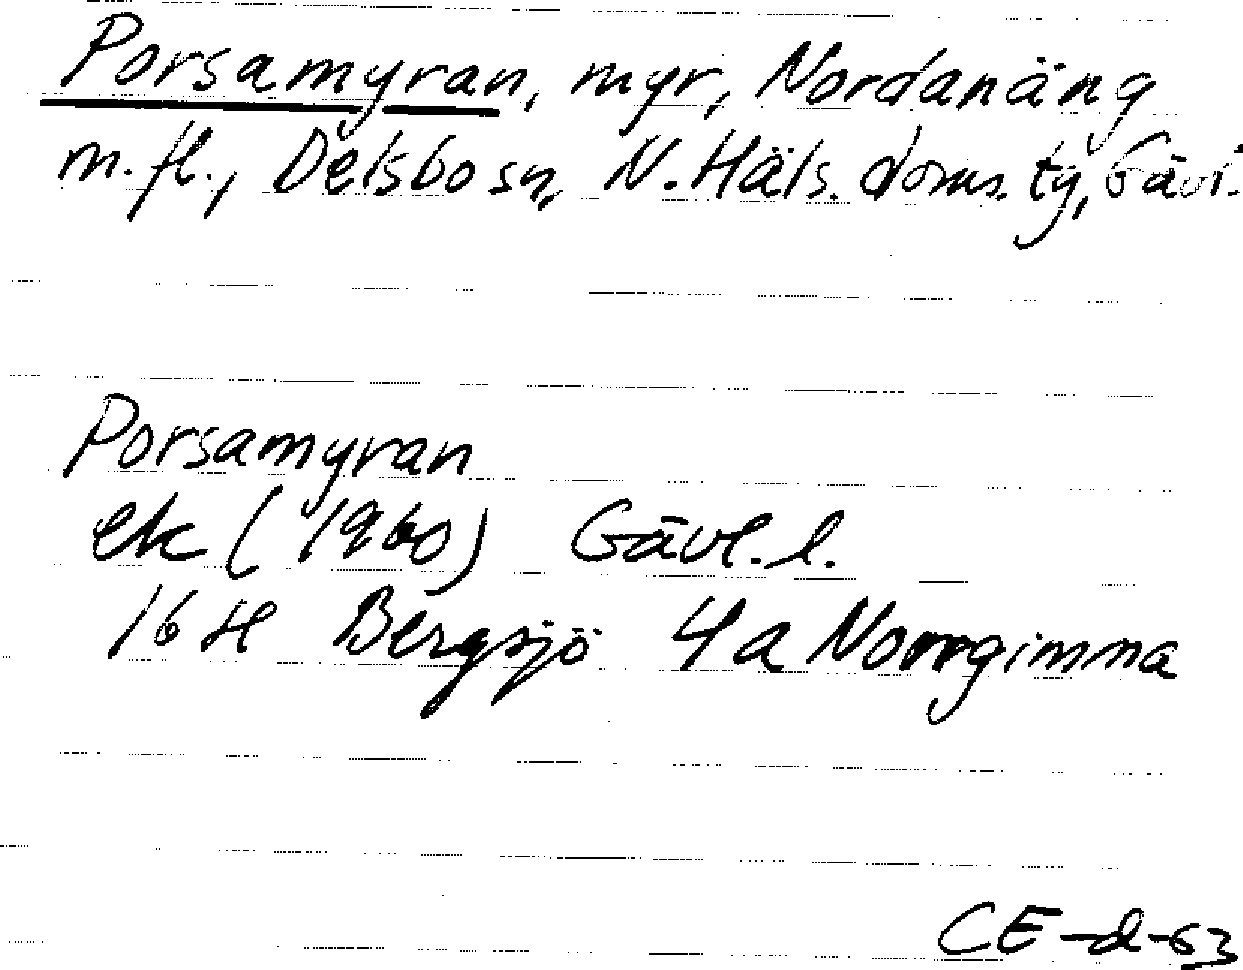 Porsamyran, myr, Nordanäng
m.fl., Delsbo sn, N. Häls. doms. tg, Gävl.
Porsamyran
ek (1960) Gävl. l.
16 H Bergsjö 4a Norrgimma
CE-d-63